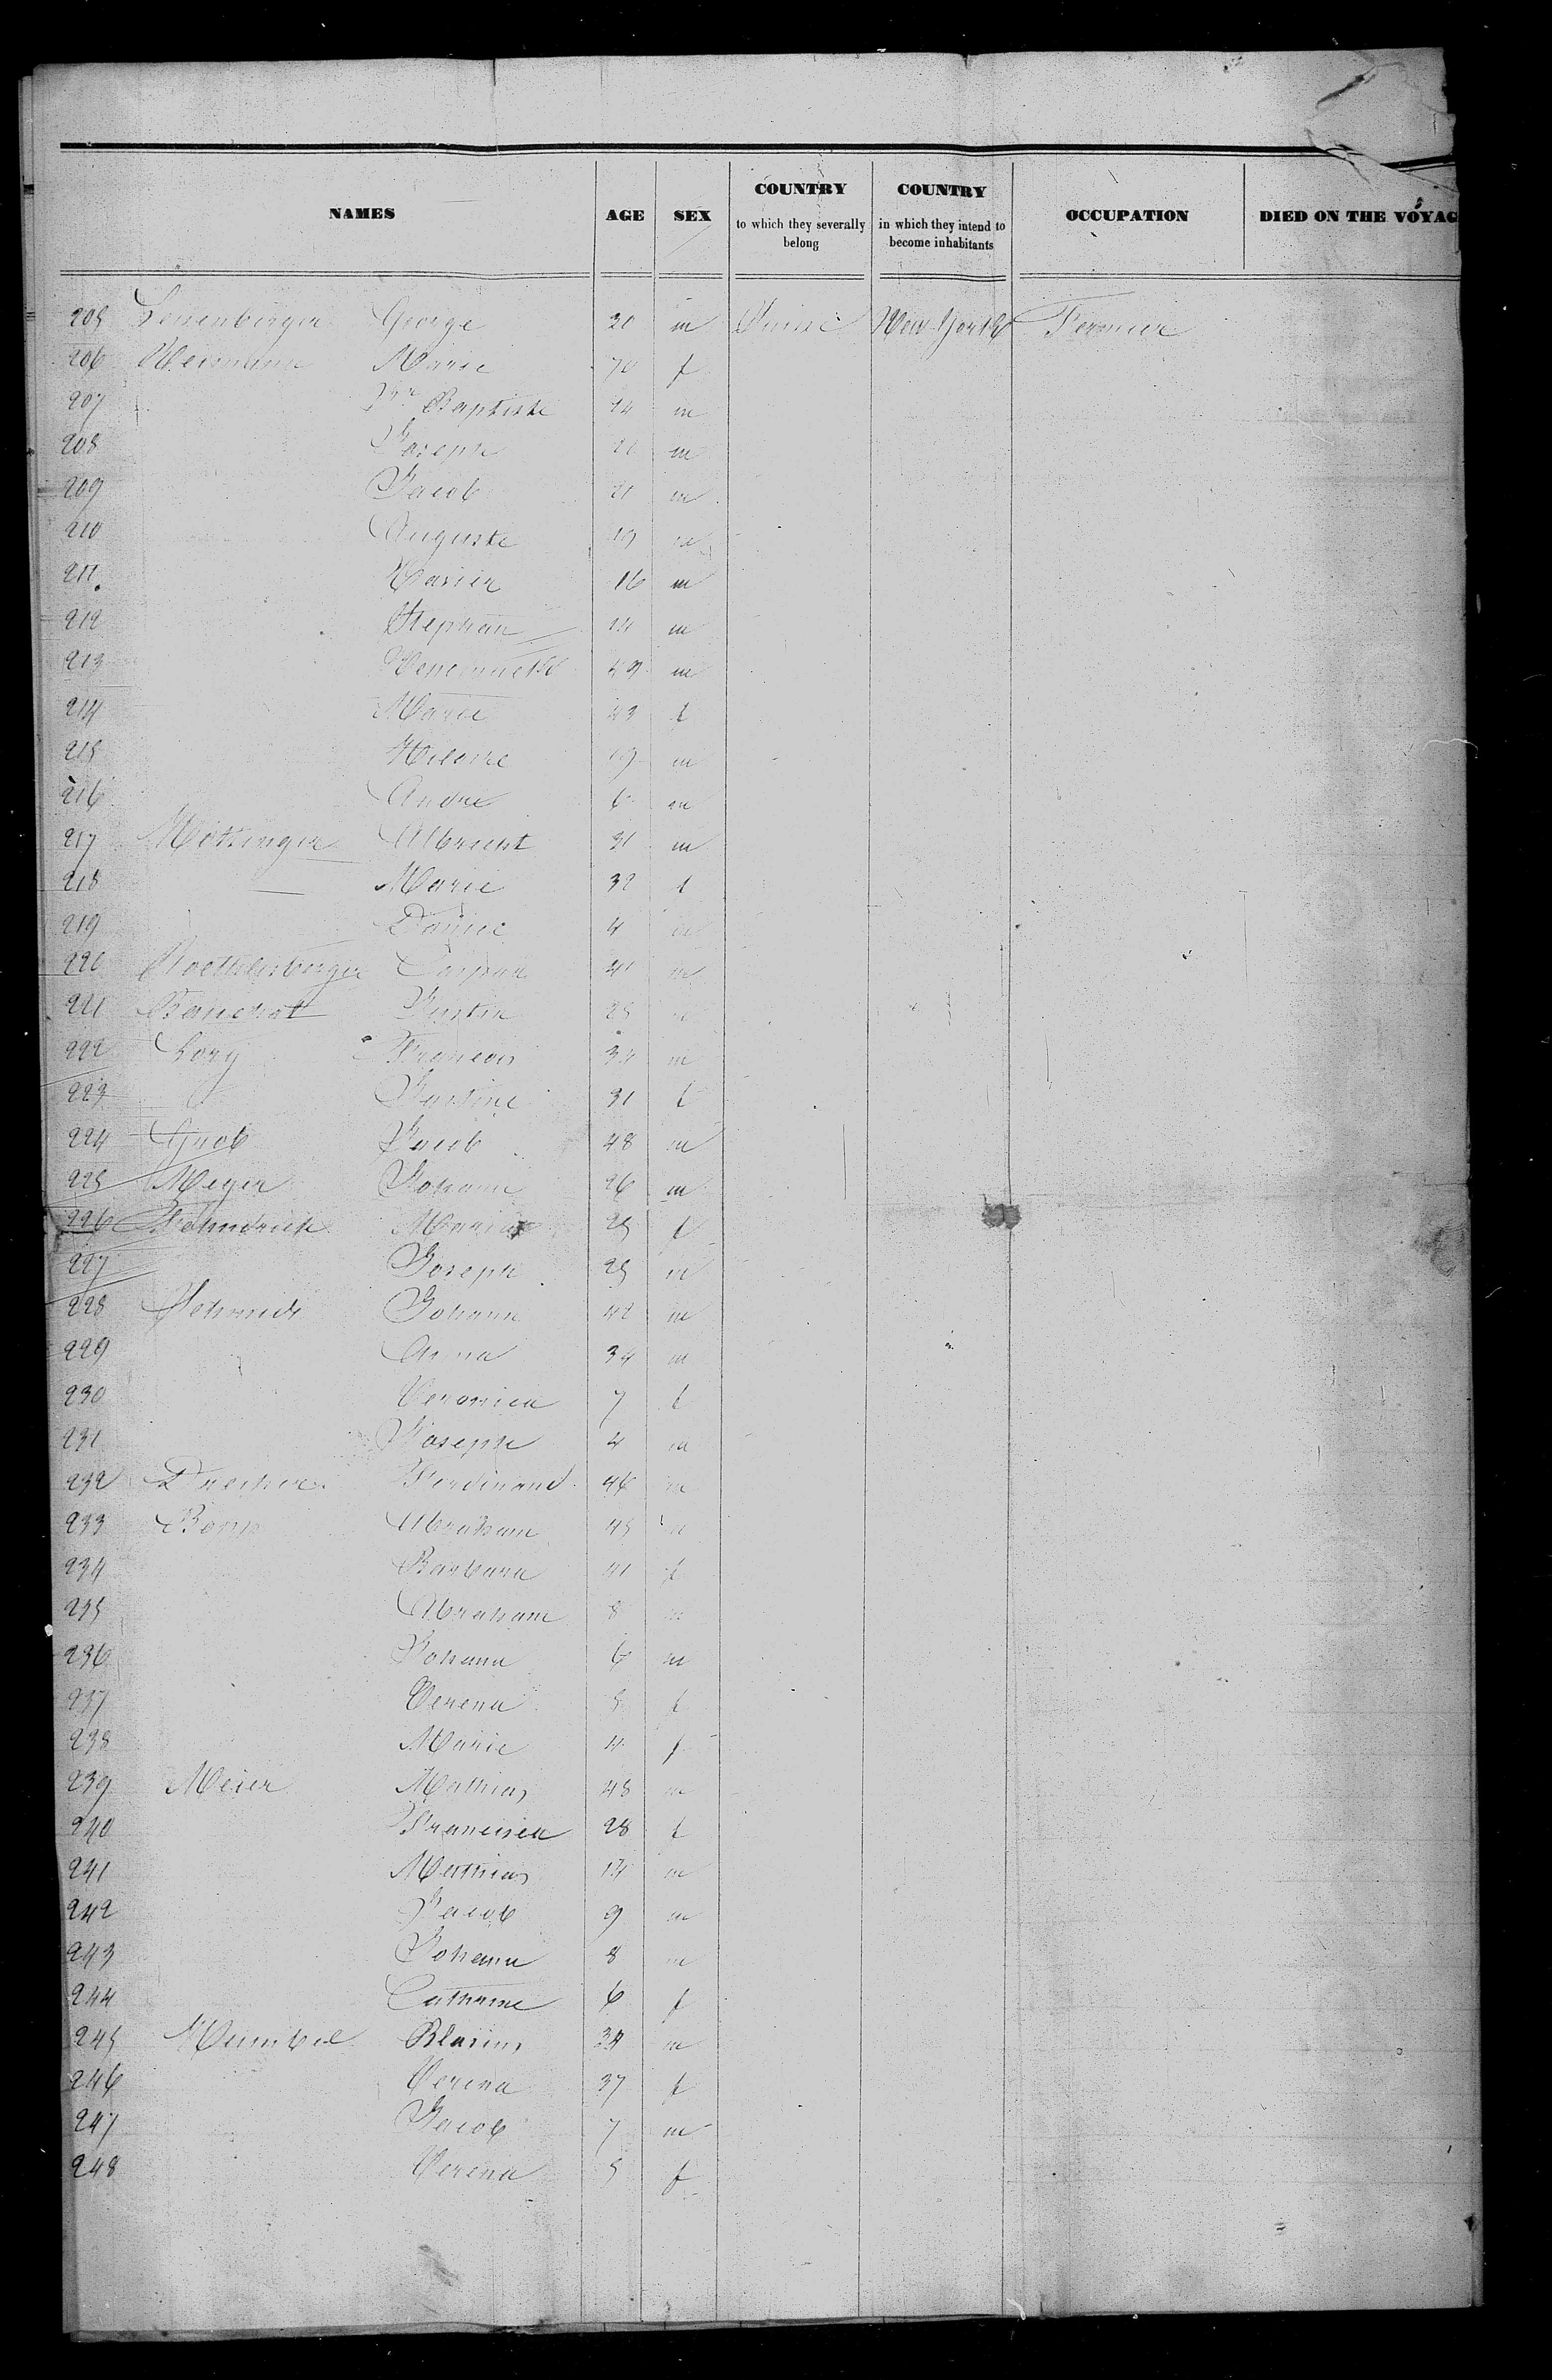 NAMES AGE SEX COUNTRY to which they severally belong COUNTRY in which they intend to become inhabitants OCCUPATION DIED ON THE VOYAG
205 Leuenberger George 20 m Suisse New York Fermier
206 Marie 70 f
207 Jn Baptiste 24 m
208 Joseph 22 m
209 Jacob 21 m
210 Auguste 19 m
211 Xavier 16 m
212 Stephan 14 m
213 49 m
214 Marie 43 f
215 Hilaire 19 m
216 Andre 6 m
217 Albrecht 31 m
218 Marie 32 f
219 4 m
220 Caspar 41 m
221 Justin 25 m
222 Lory Francois 34 m
223 Justine 31 f
224 Grob Jacob 48 m
225 Meyer Johann 26 m
226 Maria 25 f
227 Joseph 25 m
228 Schmidt Johann 42 m
229 Anna 34 m
230 Veronica 7 f
231 Joseph 4 m
232 Ferdinand 46 m
233 Abraham 45 m
234 Barbara 41 f
235 Abraham 8 m
236 Johann 6 m
237 Verena 5 f
238 Marie 4 f
239 Meier Mathias 48 m
240 Francisca 28 f
241 Matthias 14 m
242 Jacob 9 m
243 Johann 8 m
244 Catharine 6 f
245 Blasius 34 m
246 Verena 37 f
247 Jacob 7 m
248 Verena 5 f